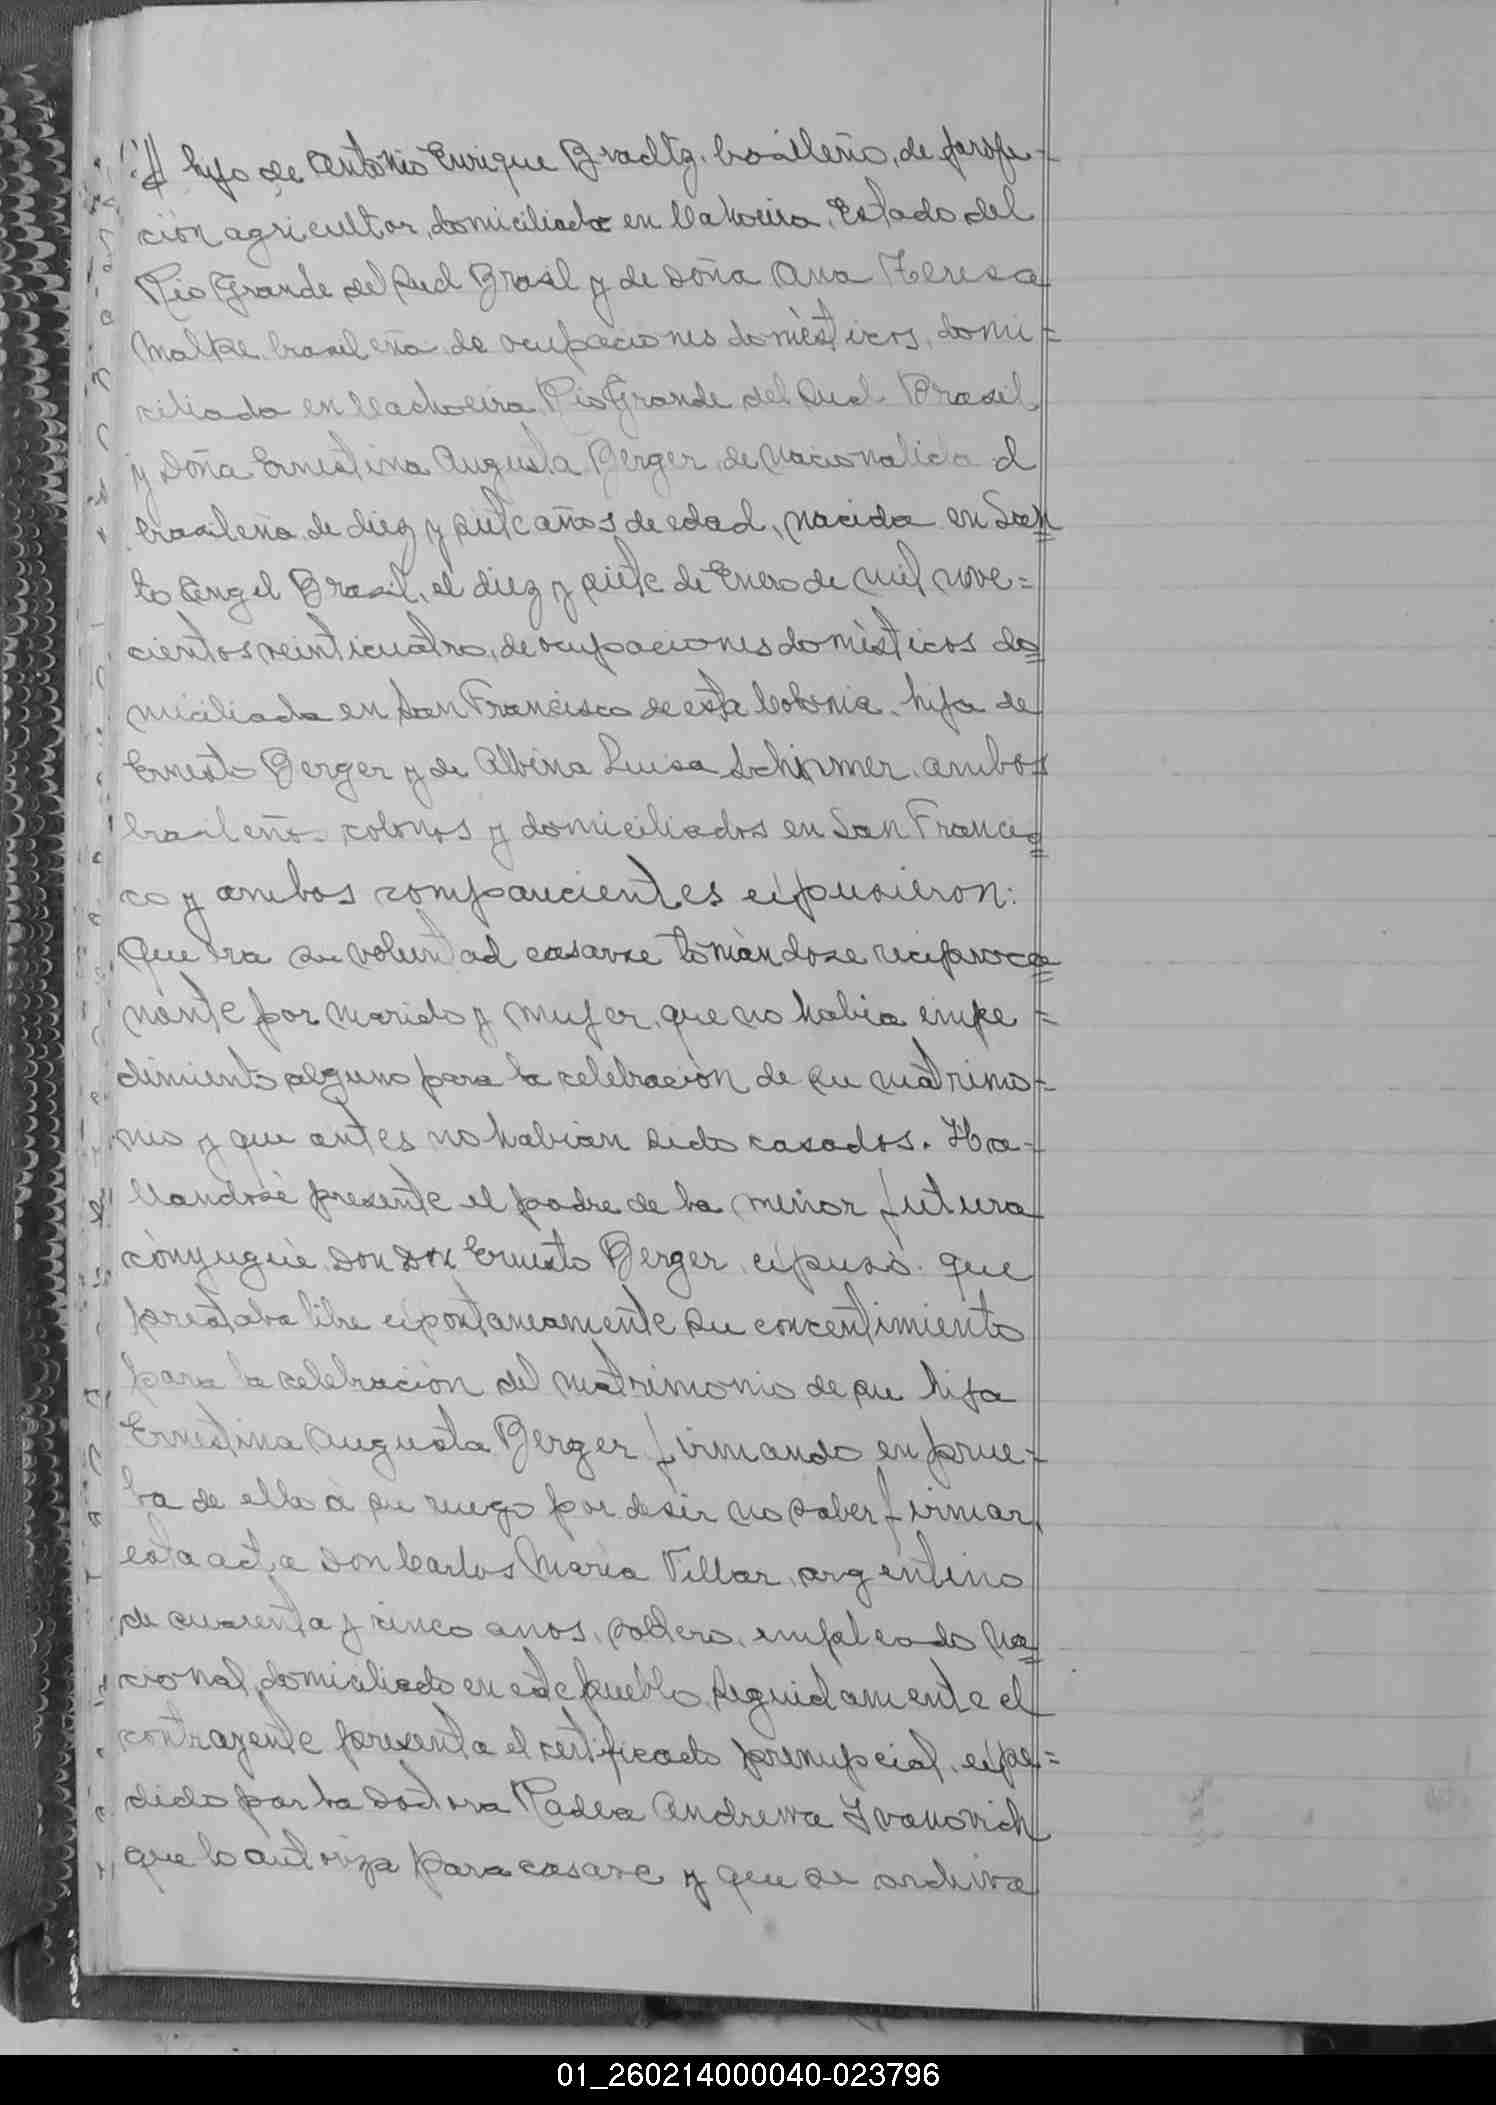 // hijo de Antonio Enrique Bradtz. brasileño, de profe-
ción agricultor, domiciliado en Cahoeira, Estado del
Rio Grande del Sud Brasil y de doña Ana Teresa
Malke brasileña de ocupaciones domèsticos, domi=
ciliada en Cachoeira Rio Grande del Sud Brasil
y Doña Ernestina Augusta Berger de nacionalidad
brasileña de diez y siete años de edad, nacida en San=
to Angel Brasil, el diez y siete de Enero de mil nove=
cientos veinticuatro, de ocupaciones domèsticos do=
miciliada en San Francisco de esta Colonia. hija de
Ernesto Berger y de Albina Luisa Schirmer. ambos
brasileños colonos y domiciliados en San Francis=
co y ambos comparecientes expusieron:
Que era su voluntad casarse tomàndose reciproca=
mente por marido y mujer, que no habia impe=
dimiento alguno para la celebraciòn de su matrimo-
nio y que antes no habian sido casados. Ha-
llandose presente el padre de la menor futura
cònyugue Don Don Ernesto Berger, expuso. que
prestaba libre espontaneamente su concentimiento
para la celebraciòn del matrimonio de su hija
Ernestina Augusta Berger firmando en prue-
ba de ello à su ruego por desir no saber firmar,
esta acta Don Carlos Maria Villar, argentino
de cuarenta y cinco anos, soltero, empleado na=
cional, domiciliado en este pueblo, Seguidamente el
contrayente presenta el certificado prenupcial, expe=
dido por la Doctora Radea Andrewa Ivanovich
que lo autoriza para casarse y que se archiva
01_260214000040-023796